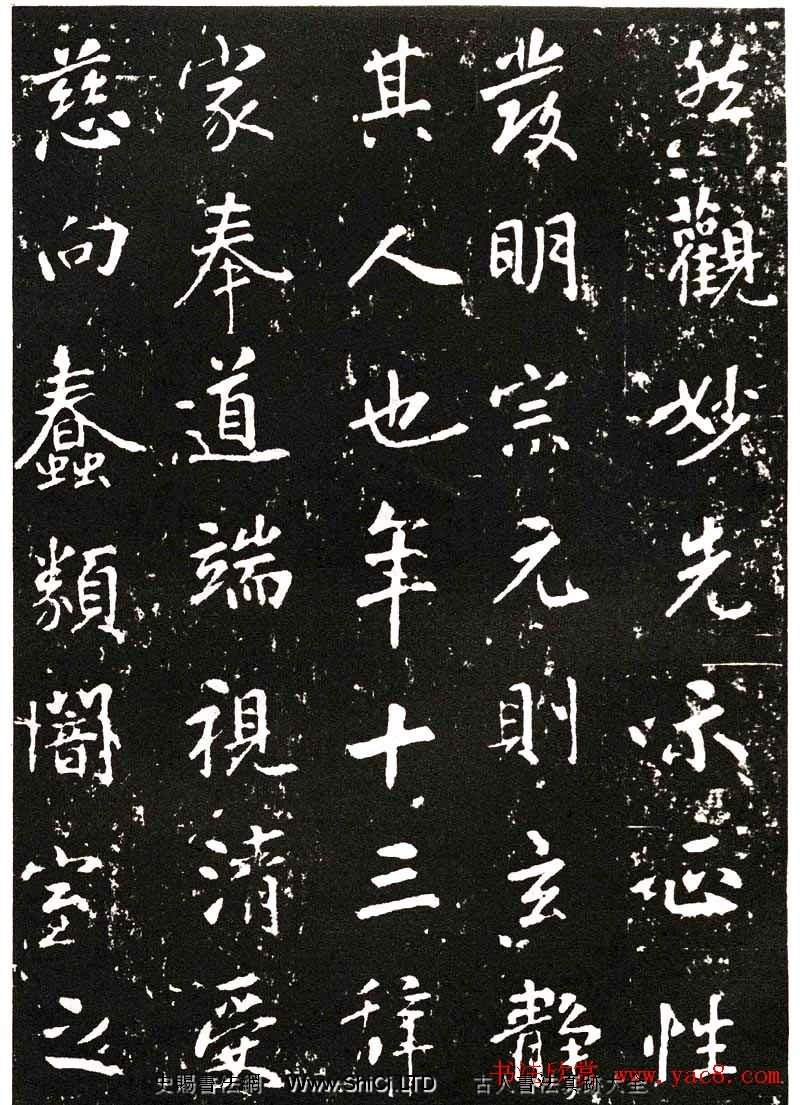 然觀妙先味正性
發明宗元則玄靜
其人也年十三辞
家奉道端視清受
慈向蠢類闇室之
史賜書法網-Www.ShicJ.LTD 古人書法真跡大全
书法欣赏 www.yac8.com